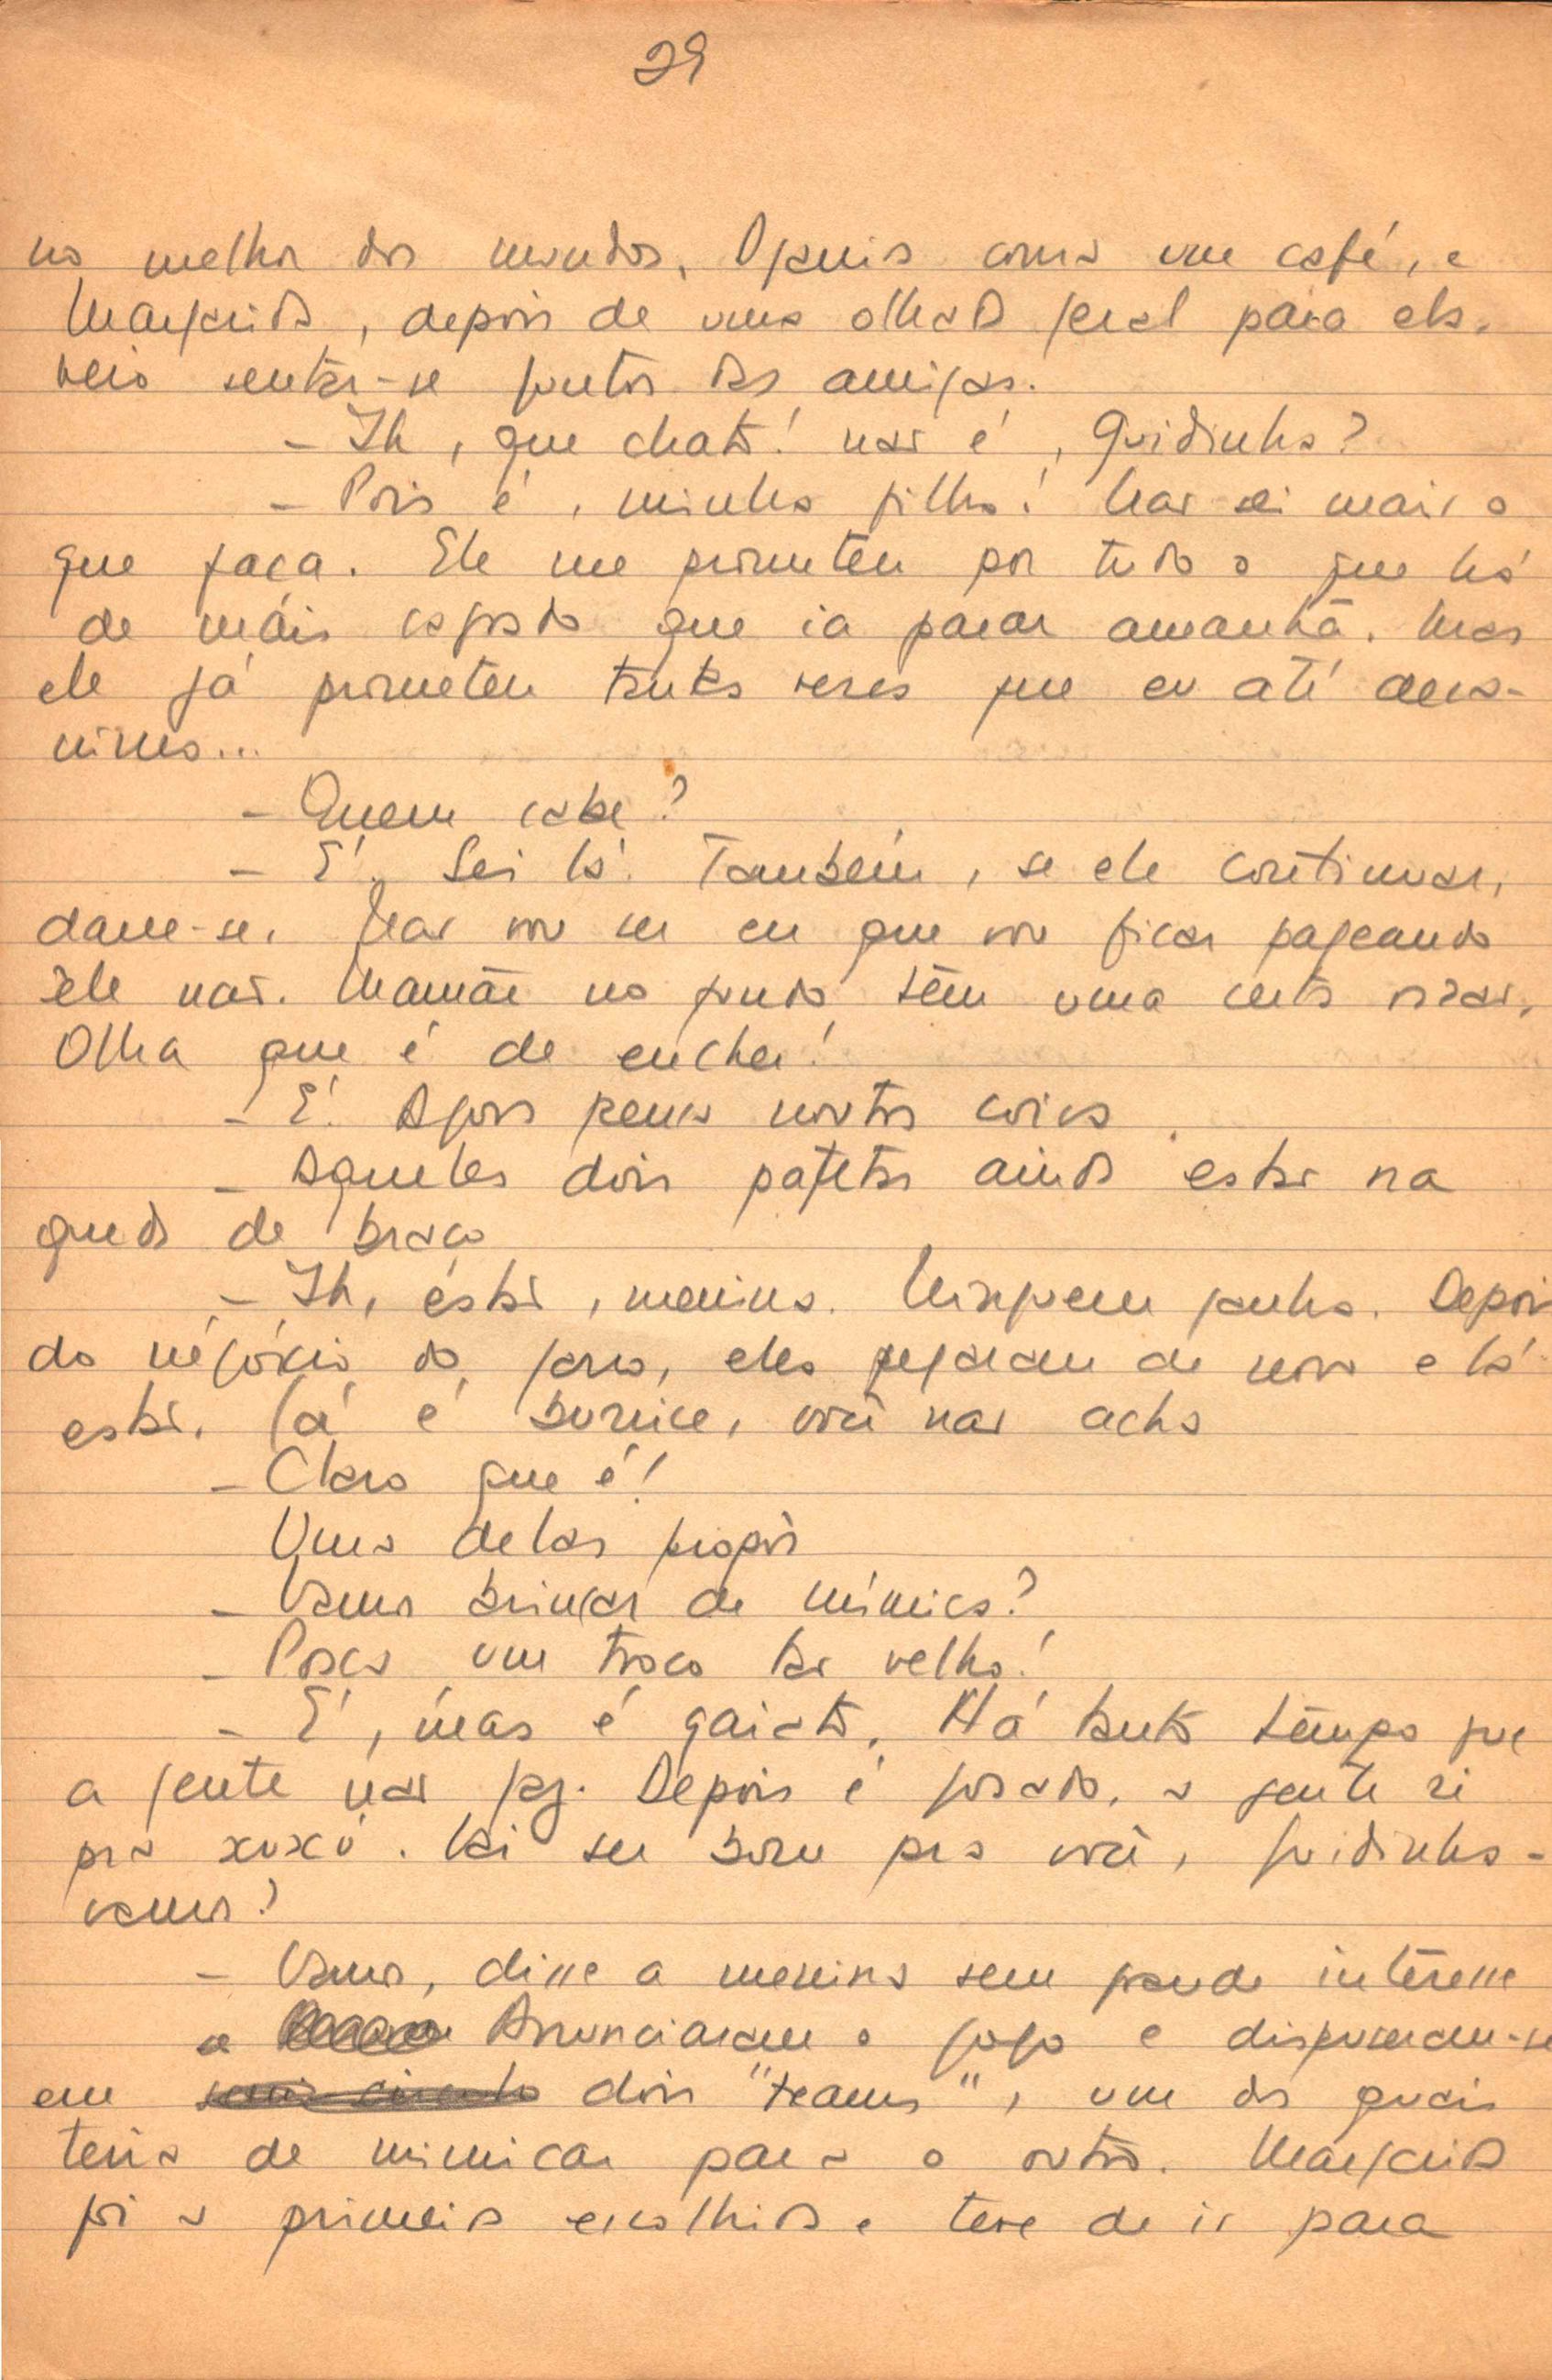 29
no melhor dos mundos. Depois como um café, e
Margarida, depois de uma olhada geral para ela,
veio sentar-se junto das amigas.
- Ih, que chato! não é, Guidinha?
- Pois é, minha filha! Não sei mais o
que faça. Ele me prometeu por tudo o que há
de mais sagrado que ia parar amanhã. Mas
ele já prometeu tantas vezes que eu até desa-
nimo...
- Quem sabe?
- É. Sei lá. Também, se ele continuar,
dane-se. Não vou ser eu que vou ficar pageando
êle não. Mamãe no fundo têm uma certa razão.
Olha que é de encher!
- É. Agora pensa noutra coisa.
- Aqueles dois patetas ainda estão na
queda de braço
- Ih, estão, menina. Ninguem ganha. Depois
do negócio do jarro, eles pegaram de novo e lá
estão. Já é burrice, você não acha
- Claro que é!
Uma delas propôs
- Vamos brincar de mímica?
- Poxa um troço tão velho!
- É, mas é gaiato. Há tanto têmpo que
a gente não faz. Depois é gosado, a gente ri
pra xuxú. Vai ser bom pra você, Guidinha -
vamos?
- Vamos, disse a menina sem grande interêsse
e Anunciaram o jogo e dispuseram-se
em semi-circulo dois "teams", um dos quais
teria de mimicar para o outro. Margarida
foi a primeira escolhida e teve de ir para